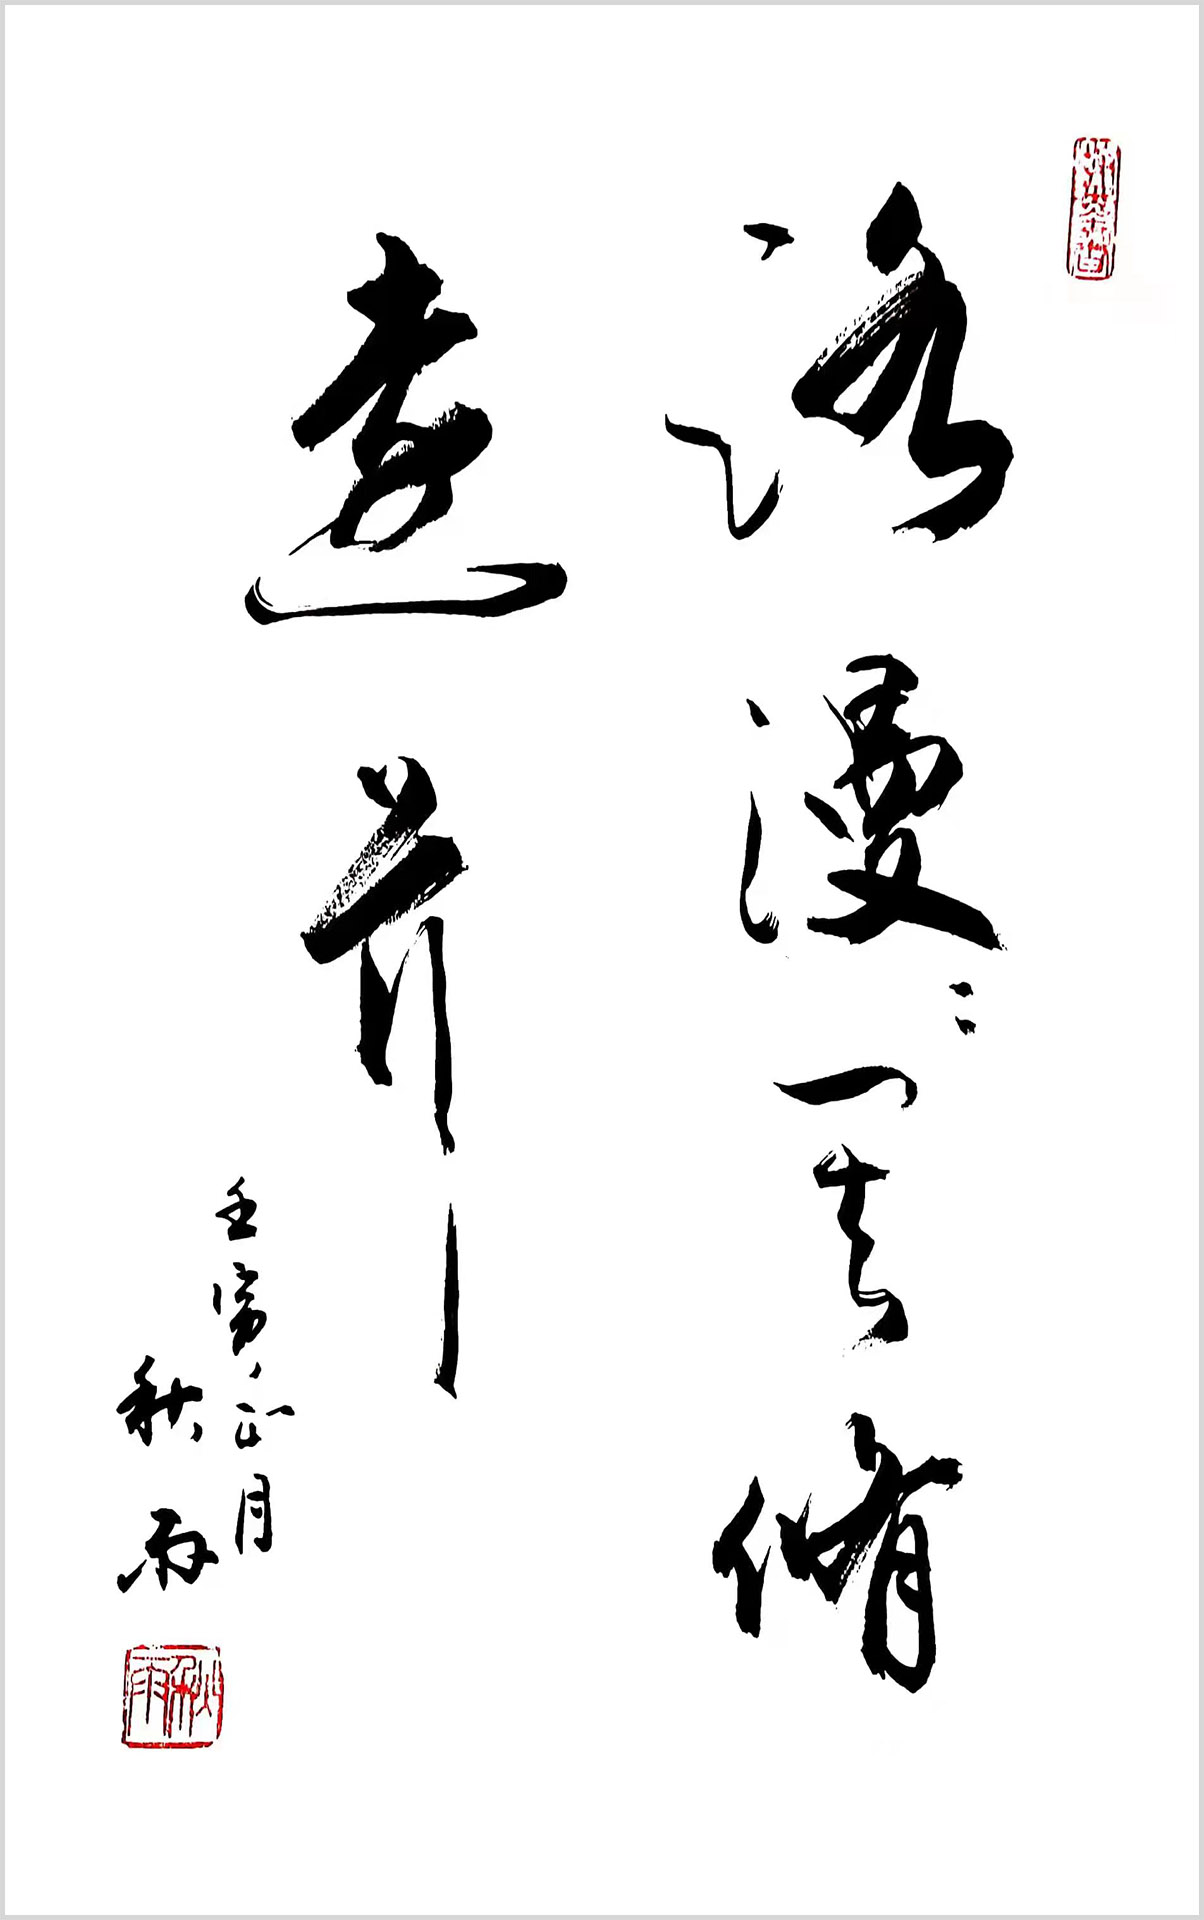 路漫漫其脩
遠兮
壬寅正月
秋雨
秋雨